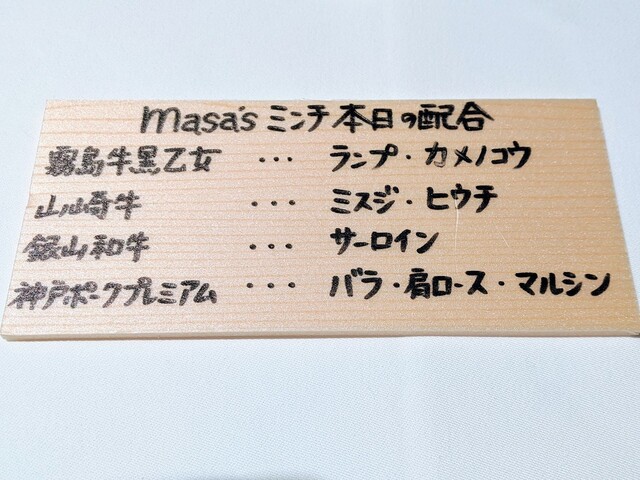 masa's ミンチ 本日の配合
霧島牛黒乙女 ・・・ ランプ・カメノコウ
山崎牛 ・・・ ミスジ・ヒウチ
銀山和牛 ・・・ サーロイン
神戸ポークプレミアム ・・・ バラ・肩ロース・マルシン